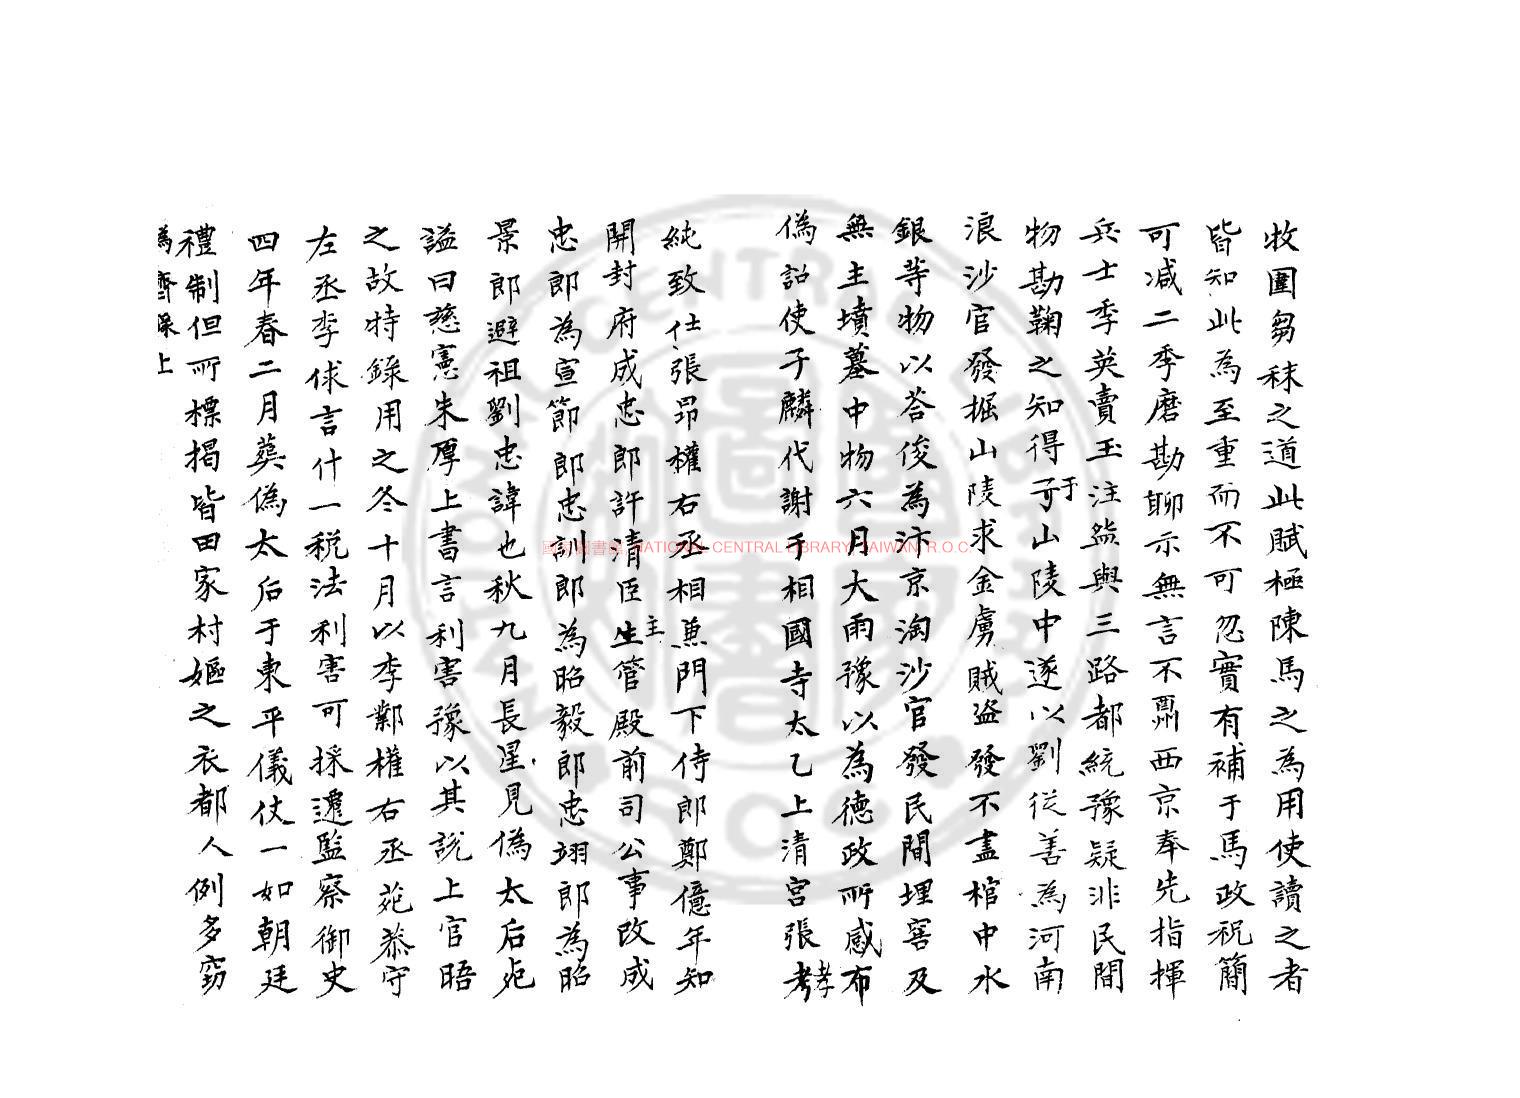 牧圉芻秣之道此賦極陳馬之為用使讀之者
皆知此為至重而不可忽實有補于馬政祝簡
可減二季磨勘聊示無言不酬西京奉先指揮
兵士李英賣玉注盌與三路都統豫疑非民間
物勘鞠之知得于山陵中遂以劉從善為河南
浪沙官發掘山陵求金虜賊盜發不盡棺中水
銀等物以荅俊為汴京淘沙官發民間埋窖及
無主墳墓中物六月大雨豫以為德政所感布
偽詔使子麟代謝于相國寺太乙上清宮張孝
純致仕張昂權右丞相兼門下侍郎鄭億年知
開封府成忠郎許清臣主管殿前司公事改成
忠郎為宣節郎忠訓郎為昭毅郎忠翊郎為昭
景郎避祖劉忠諱也秋九月長星見偽太后死
謚曰慈憲朱厚上書言利害豫以其說上官晤
之故特錄用之冬十月以李鄴權右丞范恭守
左丞李俅言什一稅法利害可採遷監察御史
四年春二月葬偽太后于東平儀仗一如朝廷
禮制但所標揭皆田家村嫗之衣都人例多竊
為齊深上
國家圖書館 NATIONAL CENTRAL LIBRARY, TAIWAN, R.O.C.